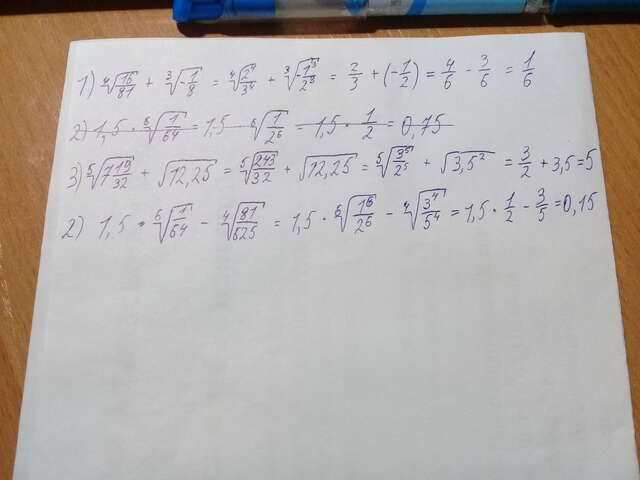 1) ⁴√(16/81) + ³√(-1/8) = ⁴√(2⁴/3⁴) + ³√(-1³/2³) = 2/3 + (-1/2) = 4/6 - 3/6 = 1/6
2) 1,5 · ⁶√(1/64) = 1,5 · ⁶√(1/2⁶) = 1,5 · 1/2 = 0,75
3) ⁵√(7 19/32) + √12,25 = ⁵√(243/32) + √12,25 = ⁵√(3⁵/2⁵) + √3,5² = 3/2 + 3,5 = 5
2) 1,5 · ⁶√(1/64) - ⁴√(81/625) = 1,5 · ⁶√(1⁶/2⁶) - ⁴√(3⁴/5⁴) = 1,5 · 1/2 - 3/5 = 0,15